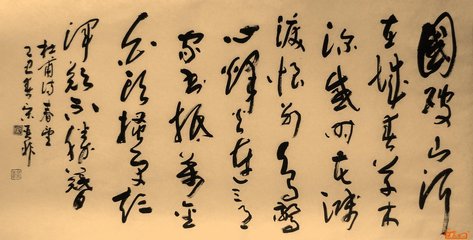 國破山河
在城春草木
深感時花濺
淚恨別鳥驚
心烽火連三月
家書抵萬金
白頭搔更短
渾欲不勝簪
杜甫詩春望